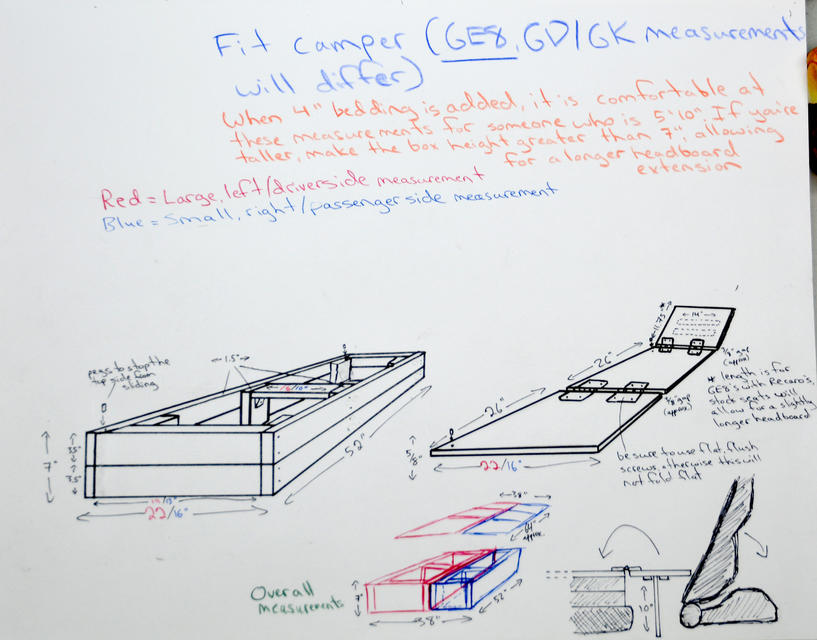 Fit camper (GE8, GD/GK measurements
will differ)
When 4" bedding is added, it is comfortable at
these measurements for someone who is 5'10". If you're
taller, make the box height greater than 7", allowing
for a longer headboard
extension
Red = Large, left/driverside measurement
Blue = Small, right/passenger side measurement
pegs to stop the
top side from
sliding
1.5"
7"
3.5"
3.5"
22/16"
52"
26"
26"
11.75"
14"
3/8" gap
(approx)
3/8" gap
(approx)
* length is for
GE8's with Recaro's,
stock seats will
allow for a slightly
longer headboard
5/8"
22/16"
be sure to use flat, flush
screws, otherwise this will
not fold flat
38"
64"
approx
Overall
measurements
7"
38"
52"
10"